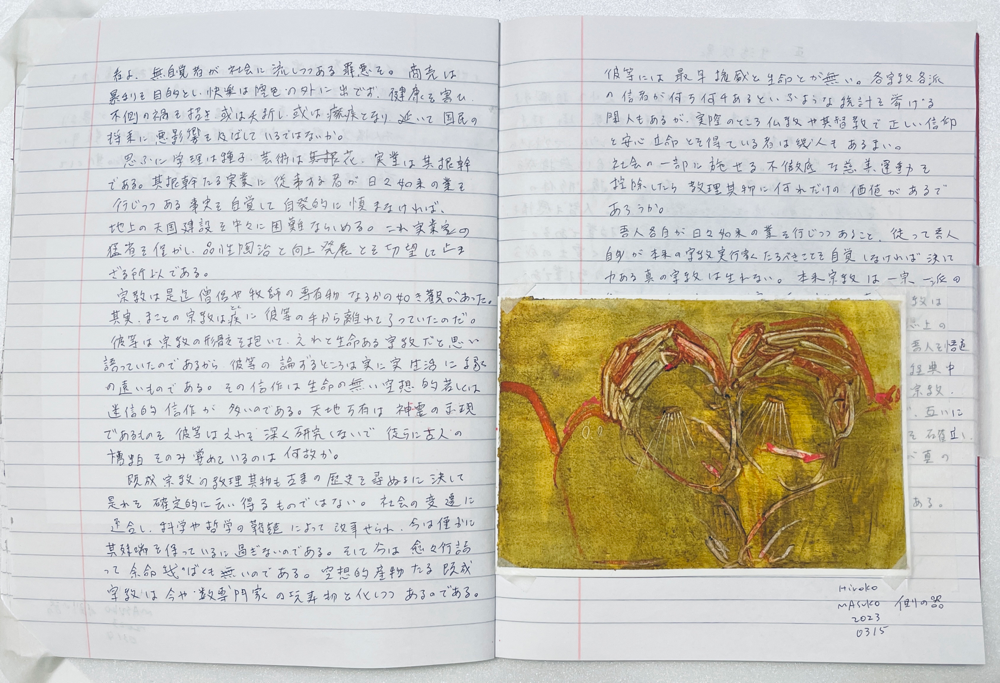 在よ、無自覚者が社会に流しつつある罪悪を。商売は
暴利を目的とし快楽は陰色の外に出でず、健康を害ひ
不側の禍を招き或は夭折し或は癈疾となり延いて国民の
将来に悪影響を及ぼしているではないか。
思ふに学理は種子、芸術は花、実業は其根幹
である。其根幹たる実業に従事する者が日々如来の業を
行じつつある事実を自覚して自発的に慎まなければ、
地上の天国建設を中々に困難ならしめる。これ実業家の
猛省を促がし、品性陶冶と向上発展とを切望して止ま
ざる所以である。
宗教は是迄僧侶や牧師の専有物なるかの如き観があった。
其実、まことの宗教は疾に彼等の手から離れて了っていたのだ。
彼等は宗教の形骸を抱いて、それを生命ある宗教だと思い
語っていたのであるから彼等の論ずるところは実に実生活に縁
の遠いものである。その信仰は生命の無い空想的若しくは
迷信的信仰が多いのである。天地万有は神霊の示現
であるものを彼等はそれを深く研究しないで徒らに古人の
糟粕をのみ嘗めているのは何故か。
既成宗教の教理其物も古来の歴史を尋ぬるに決して
是れを確定的に云い得るものではない。社会の変遷に
適合し、科学や哲学の新説によって改革せられ、今は僅かに
其残喘を保っているに過ぎないのである。そして今は愈々行詰
って余命幾ばくも無いのである。空想的産物たる既成
宗教は今や教専門家の玩弄物と化しつつあるのである。
彼等には最早権威と生命とが無い。各宗教各派
の信者が何ち何千あるというような統計を挙げる
間人もあるが、実際のところ仏教や其督教で正しい信仰
と安心立命とを得ている者は幾人もあるまい。
社会の一部に施せる不徹底な慈善運動を
控除したら教理其物に何れだけの価値があるで
あろうか。
吾人各自が日々如来の業を行じつつあること、従って吾人
自身が本来の宗教実行家たるべきことを自覚しなければ決して
力ある真の宗教は生れない。本来宗教は一宗一派の
教は
上の
吾人を悟道
経典中
宗教、
、互いに
を確立し
が真の
ある。
Hiroko
MASUKO 組の器
2023
0315